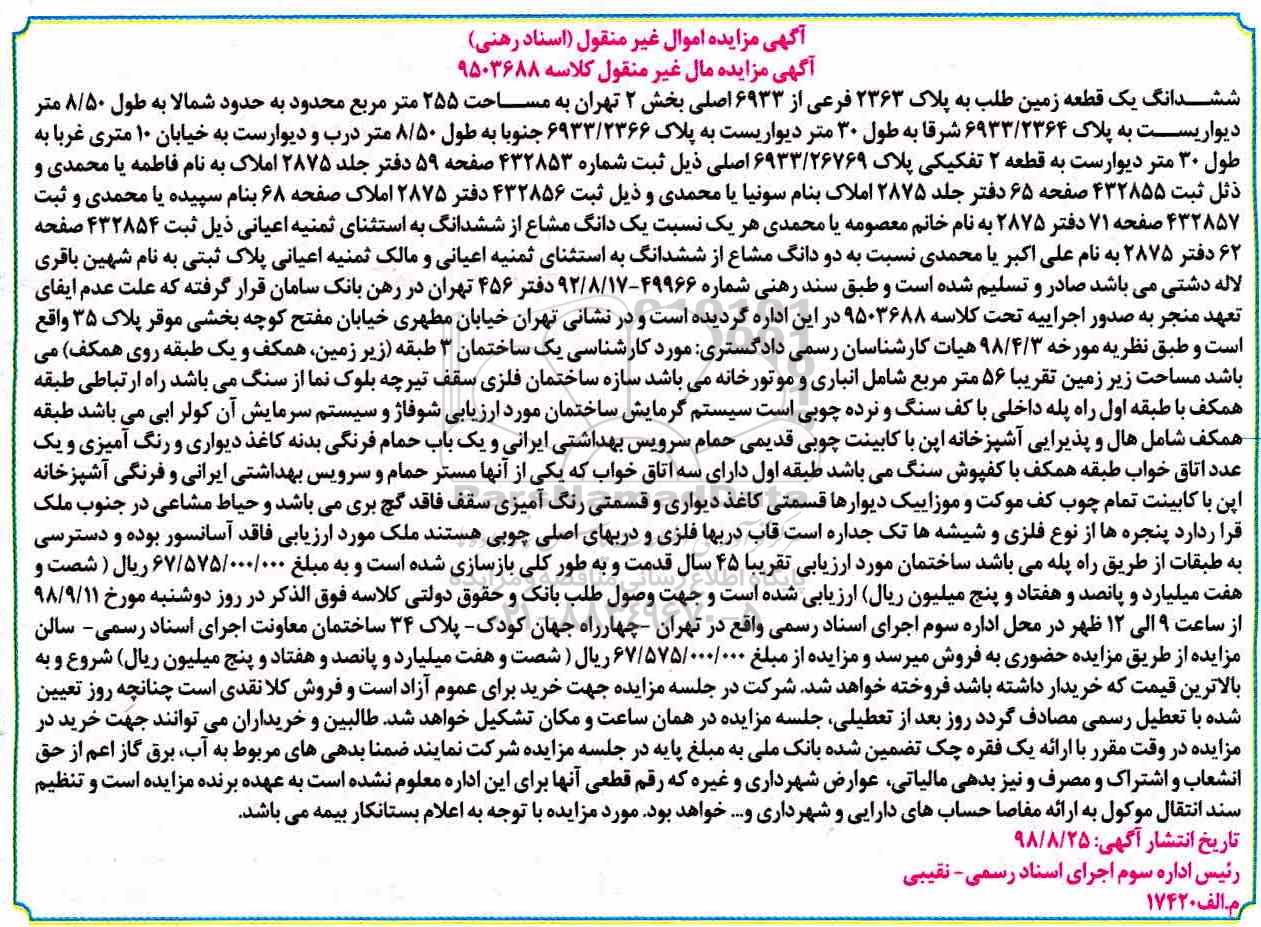 آگهی مزایده اموال غیر منقول (اسناد رهنی)
آگهی مزایده مال غیر منقول کلاسه ۹۵۰۳۶۸۸
ششـــدانگ یک قطعه زمین طلب به پلاک ۲۳۶۳ فرعی از ۶۹۳۳ اصلی بخش ۲ تهران به مســـاحت ۲۵۵ متر مربع محدود به حدود شمالا به طول ۸/۵۰ متر
دیواریســـت به پلاک ۶۹۳۳/۲۳۶۴ شرقا به طول ۳۰ متر دیواریست به پلاک ۶۹۳۳/۲۳۶۶ جنوبا به طول ۸/۵۰ متر درب و دیوارست به خیابان ۱۰ متری غربا به
طول ۳۰ متر دیوارست به قطعه ۲ تفکیکی پلاک ۶۹۳۳/۲۶۷۶۹ اصلی ذیل ثبت شماره ۴۳۲۸۵۳ صفحه ۵۹ دفتر جلد ۲۸۷۵ املاک به نام فاطمه یا محمدی و
ذئل ثبت ۴۳۲۸۵۵ صفحه ۶۵ دفتر جلد ۲۸۷۵ املاک بنام سونیا یا محمدی و ذیل ثبت ۴۳۲۸۵۶ دفتر ۲۸۷۵ املاک صفحه ۶۸ بنام سپیده یا محمدی و ثبت
۴۳۲۸۵۷ صفحه ۷۱ دفتر ۲۸۷۵ به نام خانم معصومه یا محمدی هر یک نسبت یک دانگ مشاع از ششدانگ به استثنای ثمنیه اعیانی ذیل ثبت ۴۳۲۸۵۴ صفحه
۶۲ دفتر ۲۸۷۵ به نام علی اکبر یا محمدی نسبت به دو دانگ مشاع از ششدانگ به استثنای ثمنیه اعیانی و مالک ثمنیه اعیانی پلاک ثبتی به نام شهین باقری
لاله دشتی می باشد صادر و تسلیم شده است و طبق سند رهنی شماره ۴۹۹۶۶-۹۲/۸/۱۷ دفتر ۴۵۶ تهران در رهن بانک سامان قرار گرفته که علت عدم ایفای
تعهد منجر به صدور اجراییه تحت کلاسه ۹۵۰۳۶۸۸ در این اداره گردیده است و در نشانی تهران خیابان مطهری خیابان مفتح کوچه بخشی موقر پلاک ۳۵ واقع
است و طبق نظریه مورخه ۹۸/۴/۳ هیات کارشناسان رسمی دادگستری: مورد کارشناسی یک ساختمان ۳ طبقه (زیر زمین، همکف و یک طبقه روی همکف) می
باشد مساحت زیر زمین تقریبا ۵۶ متر مربع شامل انباری و موتورخانه می باشد سازه ساختمان فلزی سقف تیرچه بلوک نما از سنگ می باشد راه ارتباطی طبقه
همکف با طبقه اول راه پله داخلی با کف سنگ و نرده چوبی است سیستم گرمایش ساختمان مورد ارزیابی شوفاژ و سیستم سرمایش آن کولر ابی می باشد طبقه
همکف شامل هال و پذیرایی آشپزخانه اپن با کابینت چوبی قدیمی حمام سرویس بهداشتی ایرانی و یک باب حمام فرنگی بدنه کاغذ دیواری و رنگ آمیزی و یک
عدد اتاق خواب طبقه همکف با کفپوش سنگ می باشد طبقه اول دارای سه اتاق خواب که یکی از آنها مستر حمام و سرویس بهداشتی ایرانی و فرنگی آشپزخانه
اپن با کابینت تمام چوب کف موکت و موزاییک دیوارها قسمتی کاغذ دیواری و قسمتی رنگ آمیزی سقف فاقد گچ بری می باشد و حیاط مشاعی در جنوب ملک
قرا ردارد پنجره ها از نوع فلزی و شیشه ها تک جداره است قاب دربها فلزی و دربهای اصلی چوبی هستند ملک مورد ارزیابی فاقد آسانسور بوده و دسترسی
به طبقات از طریق راه پله می باشد ساختمان مورد ارزیابی تقریبا ۴۵ سال قدمت و به طور کلی بازسازی شده است و به مبلغ ۶۷/۵۷۵/۰۰۰/۰۰۰ ریال ( شصت و
هفت میلیارد و پانصد و هفتاد و پنج میلیون ریال) ارزیابی شده است و جهت وصول طلب بانک و حقوق دولتی کلاسه فوق الذکر در روز دوشنبه مورخ ۹۸/۹/۱۱
از ساعت ۹ الی ۱۲ ظهر در محل اداره سوم اجرای اسناد رسمی واقع در تهران -چهارراه جهان کودک- پلاک ۳۴ ساختمان معاونت اجرای اسناد رسمی- سالن
مزایده از طریق مزایده حضوری به فروش میرسد و مزایده از مبلغ ۶۷/۵۷۵/۰۰۰/۰۰۰ ریال ( شصت و هفت میلیارد و پانصد و هفتاد و پنج میلیون ریال) شروع و به
بالاترین قیمت که خریدار داشته باشد فروخته خواهد شد. شرکت در جلسه مزایده جهت خرید برای عموم آزاد است و فروش کلا نقدی است چنانچه روز تعیین
شده با تعطیل رسمی مصادف گردد روز بعد از تعطیلی، جلسه مزایده در همان ساعت و مکان تشکیل خواهد شد. طالبین و خریداران می توانند جهت خرید در
مزایده در وقت مقرر با ارائه یک فقره چک تضمین شده بانک ملی به مبلغ پایه در جلسه مزایده شرکت نمایند ضمنا بدهی های مربوط به آب، برق گاز اعم از حق
انشعاب و اشتراک و مصرف و نیز بدهی مالیاتی، عوارض شهرداری و غیره که رقم قطعی آنها برای این اداره معلوم نشده است به عهده برنده مزایده است و تنظیم
سند انتقال موکول به ارائه مفاصا حساب های دارایی و شهرداری و... خواهد بود. مورد مزایده با توجه به اعلام بستانکار بیمه می باشد.
تاریخ انتشار آگهی: ۹۸/۸/۲۵
رئیس اداره سوم اجرای اسناد رسمی- نقیبی
م.الف ۱۷۴۲۰